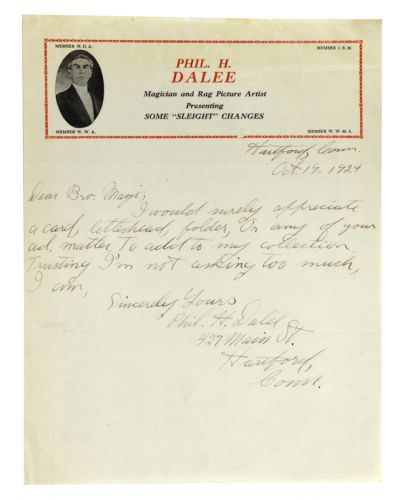 MEMBER N. C. A.
MEMBER I. B. M.
PHIL. H.
DALEE
Magician and Rag Picture Artist
Presenting
SOME "SLEIGHT" CHANGES
MEMBER W. W. A.
MEMBER W. W. M. S.
Hartford, Conn.
Oct. 19, 1924
Dear Bro. Magi;
I would surely appreciate
a card, letterhead, folder, Or any of your
ad. matter To add to my collection.
Trusting I'm not asking too much,
I am,
Sincerely Yours
Phil. H. Dalee
427 Main St.
Hartford,
Conn.